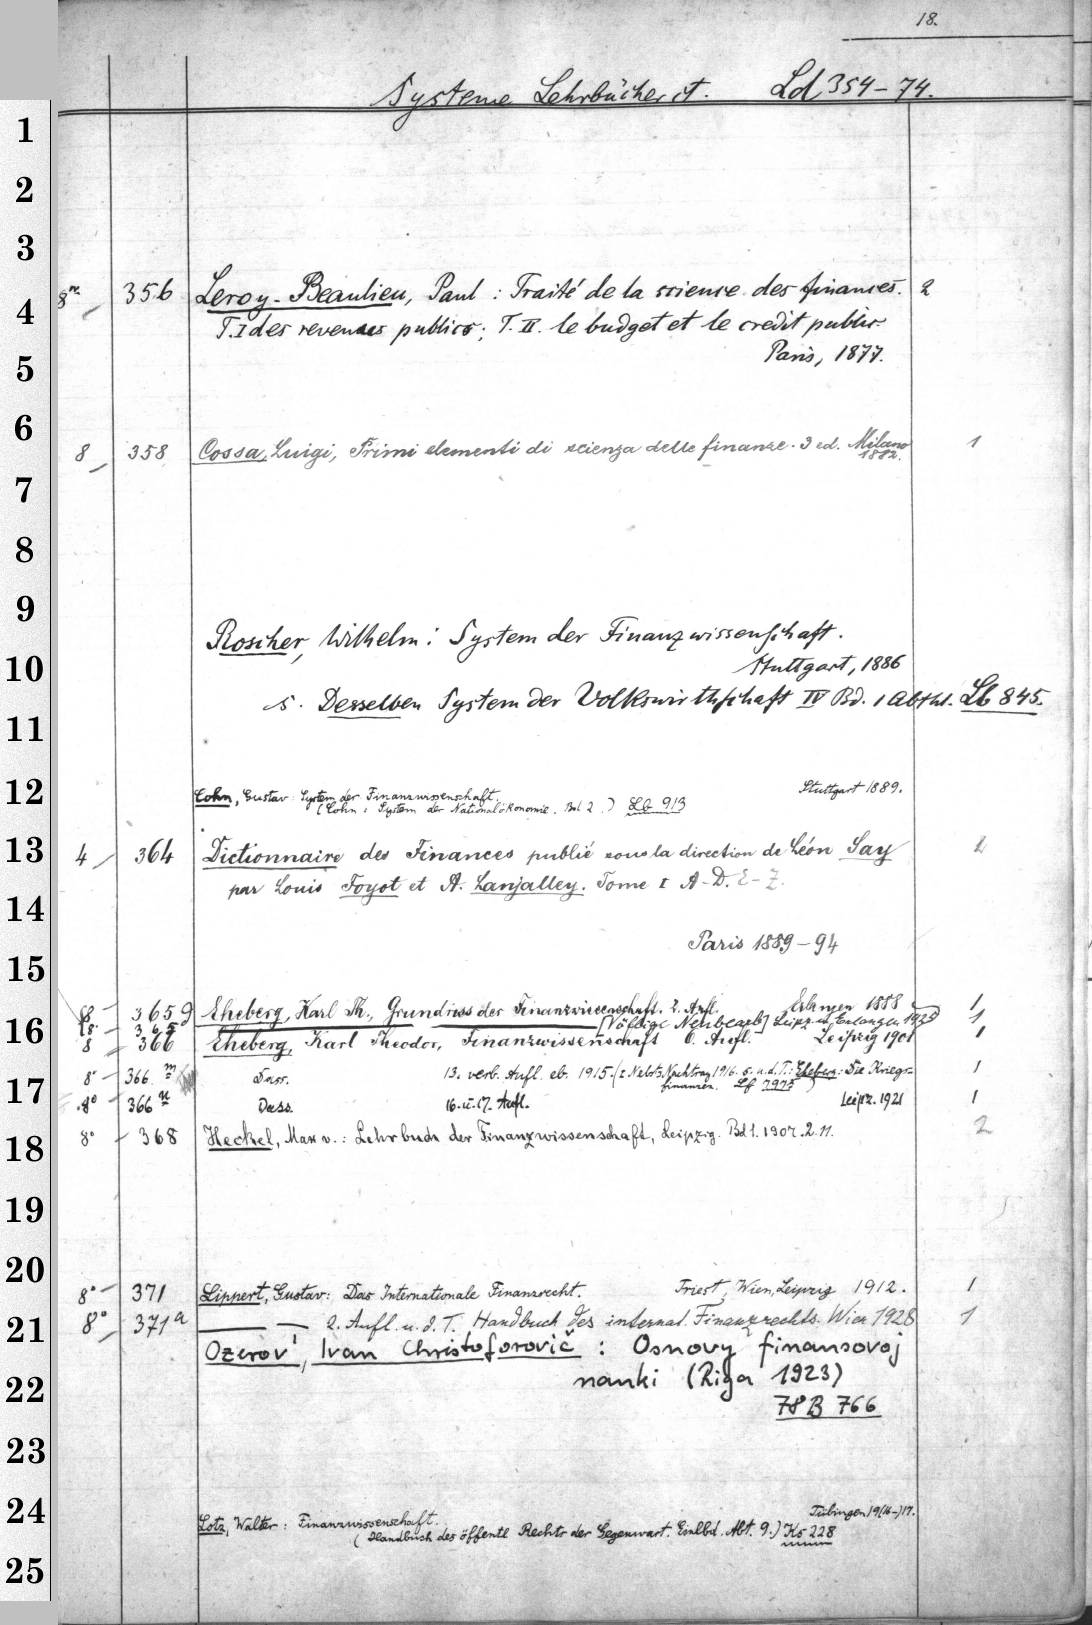 18.
Systeme Lehrbücher ct. Ld 354-74.
1
2
3
4 8° 356 Leroy-Beaulieu, Paul : Traité de la science des finances. 2
T. I des revenues publics; T. II. le budget et le credit public
5 Paris, 1877.
6 8 358 Cossa, Luigi, Primi elementi di scienza delle finanze. 3 ed. Milano 1
1882.
7
8
9
Roscher, Wilhelm: System der Finanzwissenschaft.
10 Stuttgart, 1886
s. Desselben System der Volkswirthschaft IV Bd. 1 Abthl. Lb 845.
11
12 Cohn, Gustav: System der Finanzwissenschaft. Stuttgart 1889.
(Cohn: System der Nationalökonomie. Bd 2.) Lb 913
13 4 364 Dictionnaire des Finances publié sous la direction de Léon Say 2
par Louis Foyot et A. Lanjalley. Tome I A-D. E-Z.
14
Paris 1889-94
15
8 365 g Eheberg, Karl Th., Grundriss der Finanzwissenschaft. 2. Aufl. Erlangen 1888 1
8° 365 [Völlige Neubearb.] Leipz. u. Erlangen 1925 1
16 8 366 Eheberg, Karl Theodor, Finanzwissenschaft 6. Aufl. Leipzig 1901 1
8° 366 m Dass. 13. verb. Aufl. eb. 1915. (Nachtrag 1916 s. u. d. T.: Eheberg: Die Kriegs- 1
finanzen. Lf 7975)
17 8° 366 n Dass. 16. u. 17. Aufl. Leipz. 1921 1
18 8° 368 Heckel, Max v.: Lehrbuch der Finanzwissenschaft, Leipzig. Bd 1. 1907. 2. 11. 2
19
20
8° 371 Lippert, Gustav: Das Internationale Finanzrecht. Triest, Wien, Leipzig 1912. 1
21 8° 371a — — 2. Aufl. u. d. T. Handbuch des internat. Finanzrechts. Wien 1928 1
Ozerov, Ivan Christoforovič : Osnovy finansovoj
22 nauki (Riga 1923)
78 B 766
23
24 Lotz, Walter: Finanzwissenschaft. Tübingen 19(14-)17.
(Handbuch des öffentl Rechts der Gegenwart. Einlbd. Abt. 9.) Ks 228
25